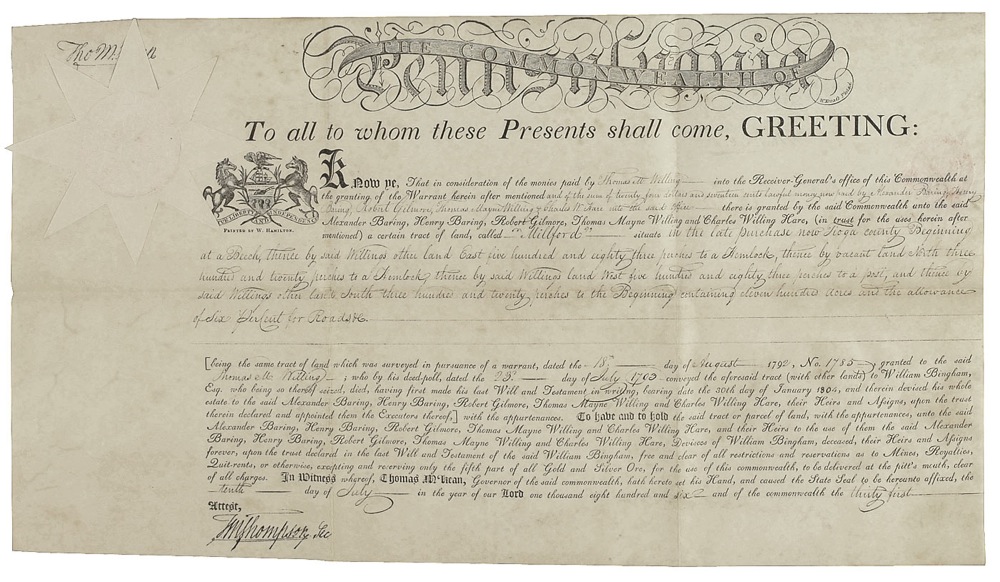 Tho M
THE COMMONWEALTH OF
Pennsylvania
To all to whom these Presents shall come, GREETING:
PRINTED BY W. HAMILTON.
Know ye, That in consideration of the monies paid by Thomas M Willing into the Receiver-General's office of this Commonwealth at
the granting of the Warrant herein after mentioned and of the sum of twenty four dollars and seventeen cents lawful money now paid by Alexander Baring, Henry
Baring, Robert Gilmore, Thomas Mayne Willing & Charles W Hare into the said office there is granted by the said Commonwealth unto the said
Alexander Baring, Henry Baring, Robert Gilmore, Thomas Mayne Willing and Charles Willing Hare, (in trust for the uses herein after
mentioned) a certain tract of land, called "Millford" situate in the late purchase now Tioga county Beginning
at a Beech, thence by said Willings other land East five hundred and eighty three perches to a Hemlock, thence by vacant land North three
hundred and twenty perches to a Hemlock, thence by said Willings land West five hundred and eighty three perches to a post, and thence by
said Willings other land South three hundred and twenty perches to the Beginning containing eleven hundred acres and the allowance
of Six Per Cent for Roads &c.
[being the same tract of land which was surveyed in pursuance of a warrant, dated the 18 day of August 1792, No. 1785, granted to the said
Thomas M Willing; who by his deed-poll, dated the 23d day of July 1793 conveyed the aforesaid tract (with other lands) to William Bingham,
Esq. who being so thereof seized; died, having first made his last Will and Testament in writing, bearing date the 30th day of January 1804, and therein devised his whole
estate to the said Alexander Baring, Henry Baring, Robert Gilmore, Thomas Mayne Willing and Charles Willing Hare, their Heirs and Assigns, upon the trust
therein declared and appointed them the Executors thereof,] with the appurtenances. To have and to hold the said tract or parcel of land, with the appurtenances, unto the said
Alexander Baring, Henry Baring, Robert Gilmore, Thomas Mayne Willing and Charles Willing Hare, and their Heirs to the use of them the said Alexander
Baring, Henry Baring, Robert Gilmore, Thomas Mayne Willing and Charles Willing Hare, Devisees of William Bingham, deceased, their Heirs and Assigns
forever, upon the trust declared in the last Will and Testament of the said William Bingham, free and clear of all restrictions and reservations as to Mines, Royalties,
Quit-rents, or otherwise, excepting and reserving only the fifth part of all Gold and Silver Ore, for the use of this commonwealth, to be delivered at the pitt's mouth, clear
of all charges. In Witness whereof, Thomas M'Kean, Governor of the said commonwealth, hath hereto set his Hand, and caused the State Seal to be hereunto affixed, the
tenth day of July in the year of our Lord one thousand eight hundred and six and of the commonwealth the thirty first
Attest,
TM Thompson Sec